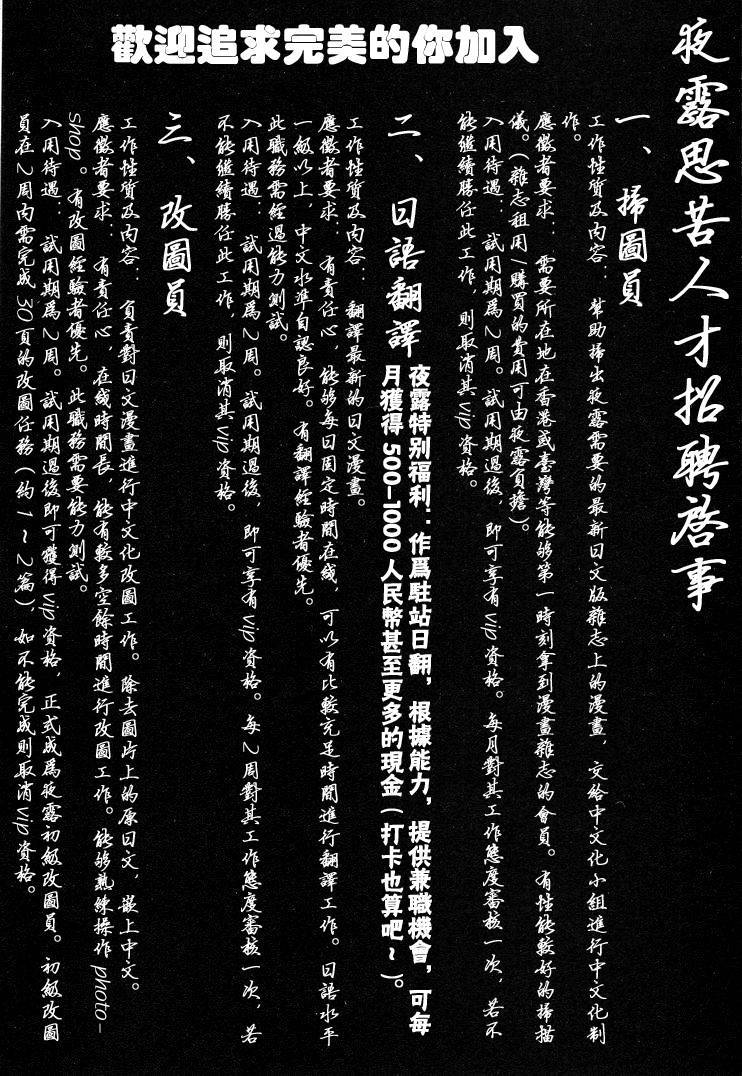 夜露思苦人才招聘啓事
歡迎追求完美的你加入
一、掃圖員
工作性質及内容：幫助掃出夜露需要的最新日文版雜志上的漫畫，交給中文化小組進行中文化制
作。
應徵者要求：需要所在地在香港或臺灣等能够第一時刻拿到漫畫雜志的會員。有性能較好的掃描
儀。（雜志租用/購買的費用可由夜露負擔）。
入用待遇：試用期爲2周。試用期過後，即可享有vip資格。每月對其工作態度審核一次，若不
能繼續勝任此工作，則取消其vip資格。
二、日語翻譯
夜露特别福利：作爲駐站日翻，根據能力，提供兼職機會，可每
月獲得500-1000人民幣甚至更多的現金（打卡也算吧~）。
工作性質及内容：翻譯最新的日文漫畫。
應徵者要求：有責任心，能够每日固定時間在綫，可以有比較充足時間進行翻譯工作。日語水平
一級以上，中文水準自認良好。有翻譯經驗者優先。
此職務需經過能力測試。
入用待遇：試用期爲2周。試用期過後，即可享有vip資格。每2周對其工作態度審核一次，若
不能繼續勝任此工作，則取消其vip資格。
三、改圖員
工作性質及内容：負責對日文漫畫進行中文化改圖工作。除去圖片上的原日文，嵌上中文。
應徵者要求：有責任心，在綫時間長，能有較多空餘時間進行改圖工作。能够熟練操作photo-
shop。有改圖經驗者優先。此職務需要能力測試。
入用待遇：試用期爲2周。試用期過後即可獲得vip資格，正式成爲夜露初級改圖員。初級改圖
員在2周内需完成30頁的改圖任務（約1~2篇），如不能完成則取消vip資格。